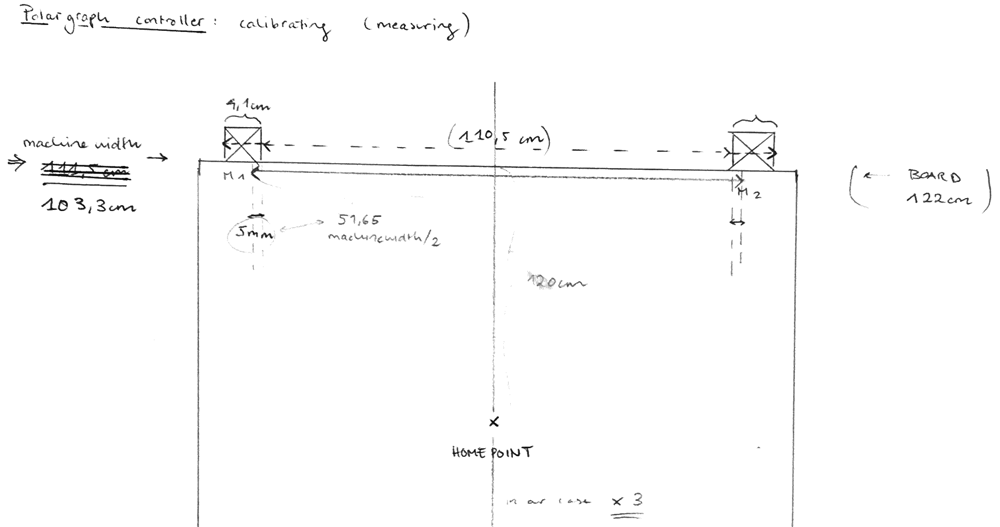 Polargraph controller: calibrating (measuring)
4,1cm
machine width
111,5 cm
103,3cm
(110,5 cm)
M1
M2
(← BOARD
122cm
5mm
51,65
machinewidth/2
120cm
×
HOME POINT
in our case × 3